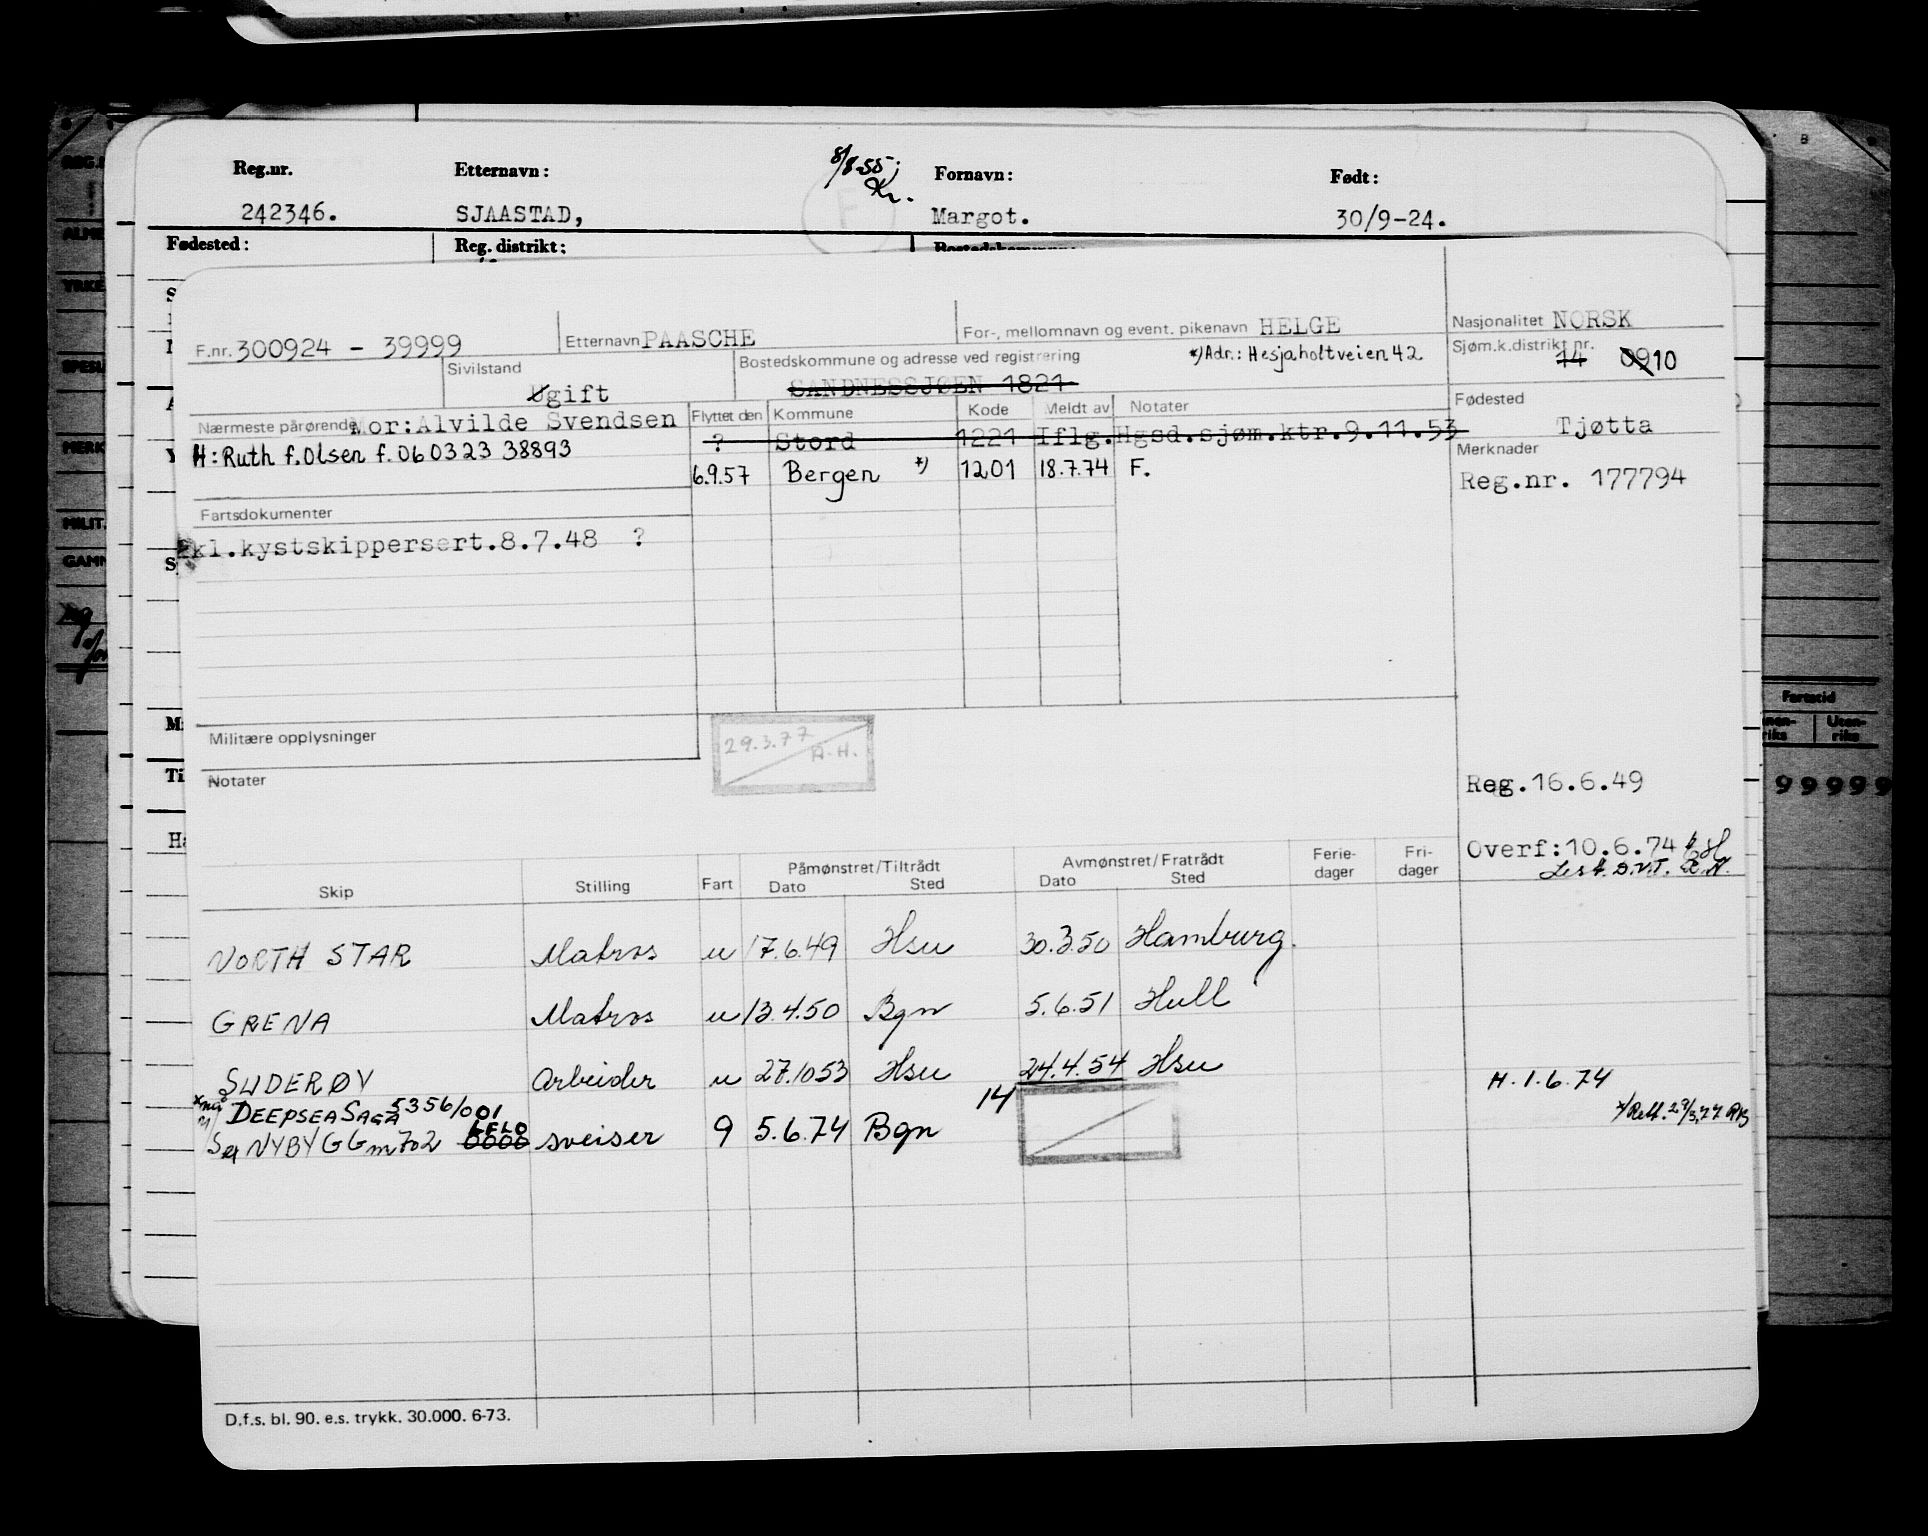 Reg.nr. Etternavn: 8/8-55; Kr. Fornavn: Født:
242346. SJAASTAD, Margot. 30/9-24.
Fødested: Reg. distrikt:
F.nr. 300924 - 39999 Etternavn PAASCHE For-, mellomnavn og event. pikenavn HELGE Nasjonalitet NORSK
Sivilstand Ugift Bostedskommune og adresse ved registrering *) Adr.: Hesjaholtveien 42 Sjøm.k.distrikt nr. 14 0910
SANDNESSJØEN 1821
Nærmeste pårørende Mor:Alvilde Svendsen Flyttet den Kommune Kode Meldt av Notater Fødested
H: Ruth f. Olsen f. 060323 38893 ? Stord 1221 Iflg.Hgsd.sjøm.ktr.9.11.53 Tjøtta
6.9.57 Bergen *) 1201 18.7.74 F. Merknader
Reg.nr. 177794
Fartsdokumenter
kl.kystskippersert.8.7.48 ?
Militære opplysninger
29.3.77 A.H.
Notater
Reg.16.6.49
Overf:10.6.74
Skip Stilling Fart Påmønstret/Tiltrådt Dato Sted Avmønstret/Fratrådt Dato Sted Ferie-dager Fri-dager
NORTH STAR Matros u 17.6.49 Hsu 30.3.50 Hamburg.
GRENA Matros u 13.4.50 Bgn 5.6.51 Hull
SUDERØY Arbeider u 27.10 53 Hsu 24.4.54 Hsu
DEEPSEA SAGA 5356/001 14 H. 1.6.74
NYBYGG m 702 LELO 0000 sveiser 9 5.6.74 Bgn
D.f.s. bl. 90. e.s. trykk. 30.000. 6-73.
Fartstid
Uten-
riks
99999